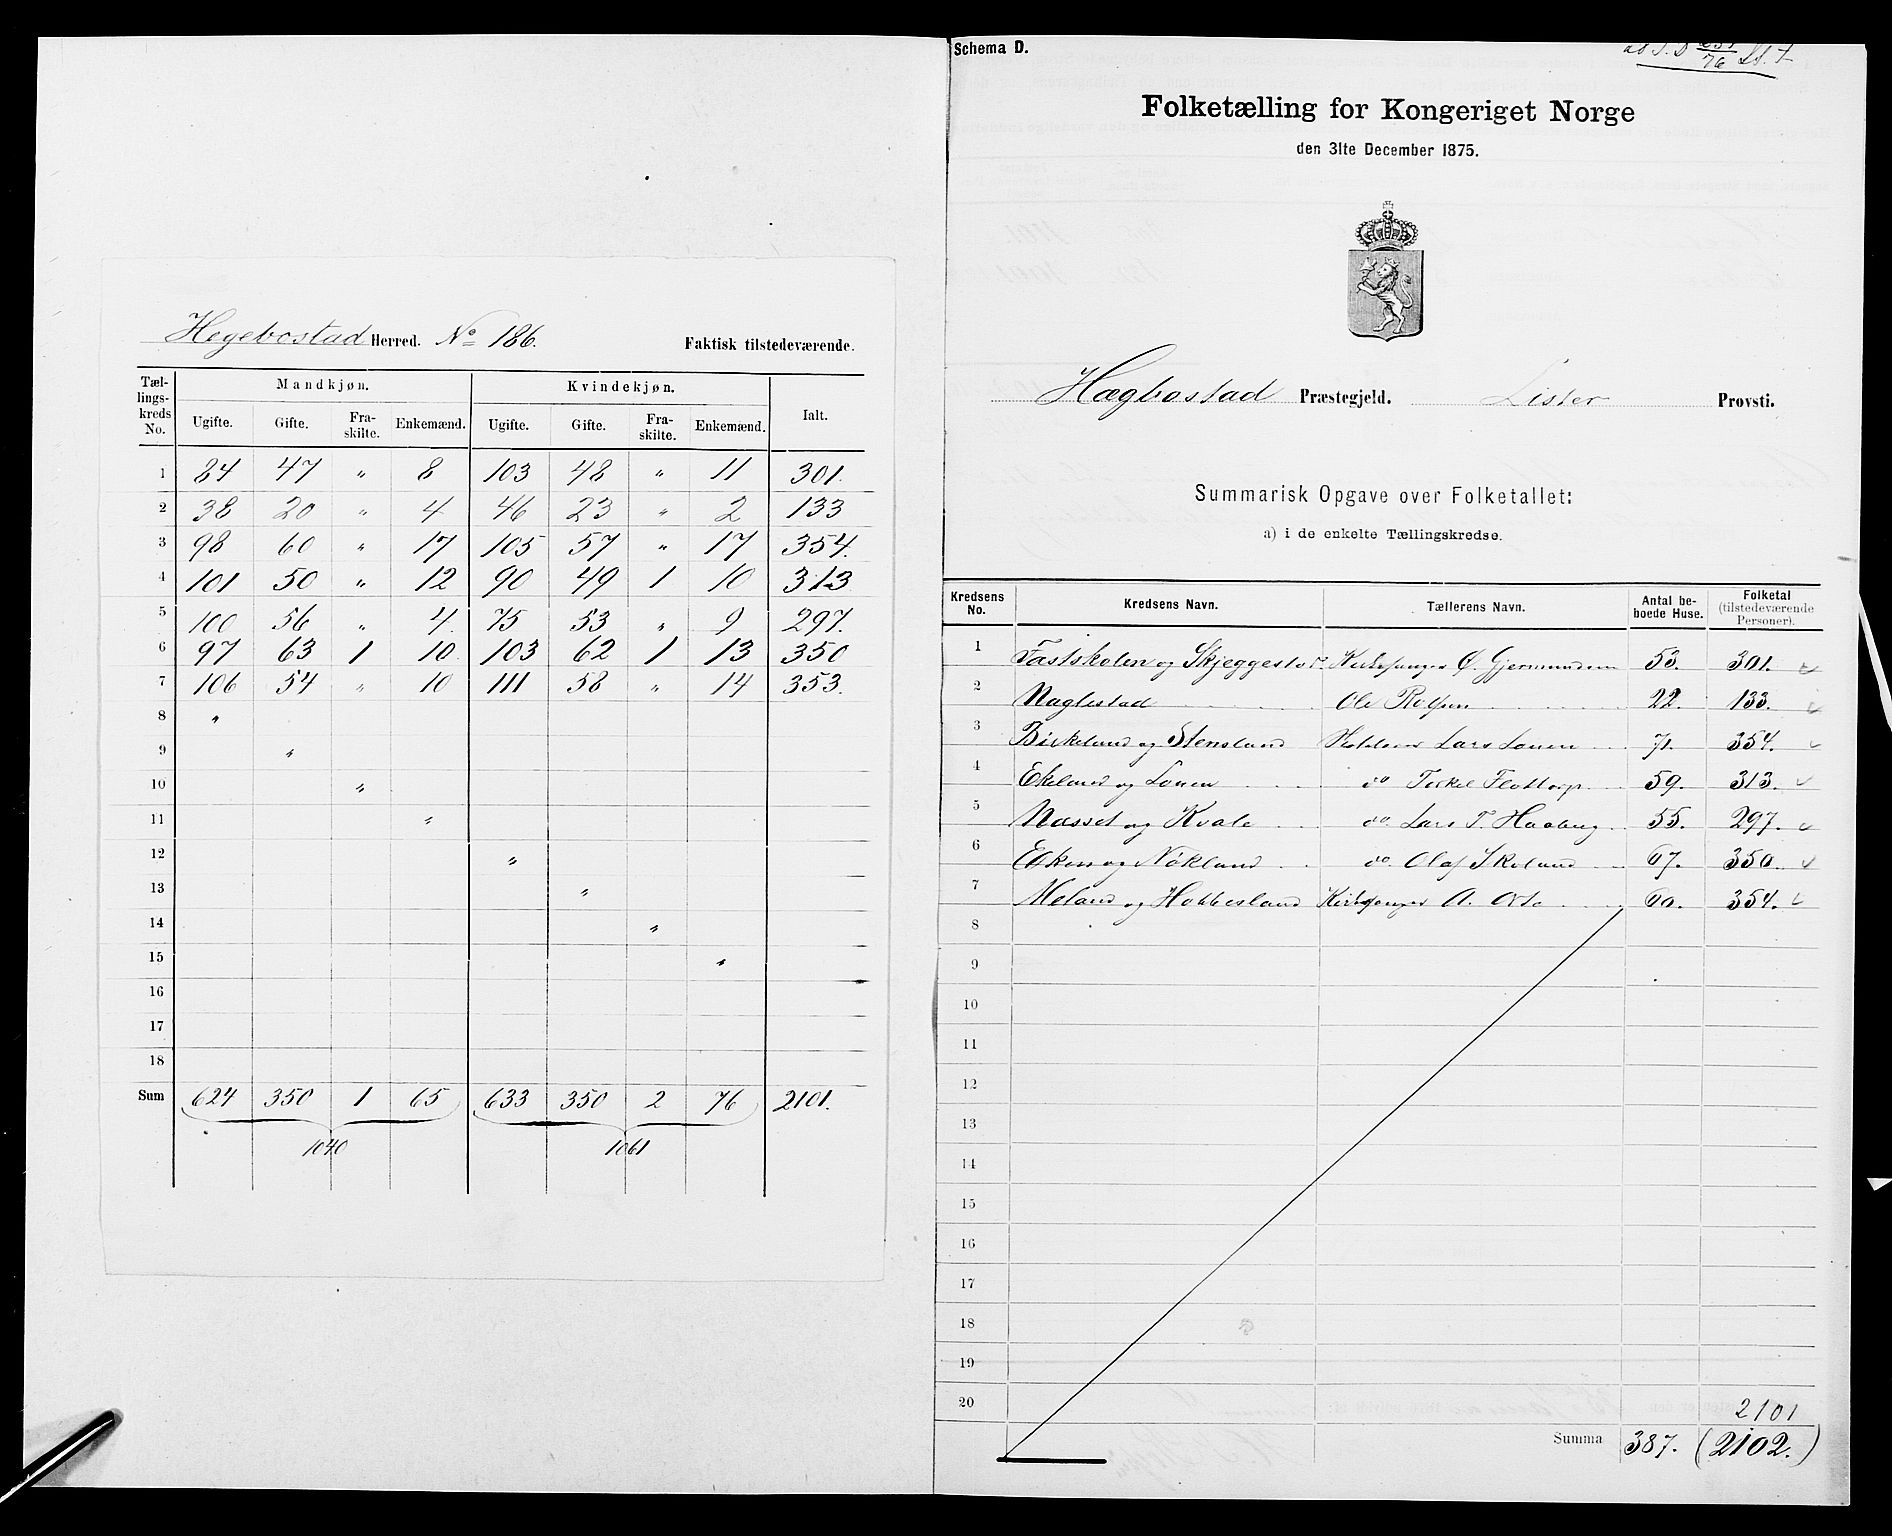 Hegebostad Herred. No 186. Faktisk tilstedeværende.
Tæl-lings-kreds No. Mandkjøn. Kvindekjøn. Ialt.
Ugifte. Gifte. Fra-skilte. Enkemænd. Ugifte. Gifte. Fra-skilte. Enkemænd.
1 84 47 " 8 103 48 " 11 301.
2 38 20 " 4 46 23 " 2 133
3 98 60 " 17 105 57 " 17 354.
4 101 50 " 12 90 49 1 10 313
5 100 56 " 4 75 53 " 9 297.
6 97 63 1 10 103 62 1 13 350
7 106 54 " 10 111 58 " 14 353.
8 "
9 "
10 "
11 "
12 "
13 "
14 "
15 "
16
17
18
Sum 624 350 1 65 633 350 2 76 2101.
1040 1061
Schema D.
76
Folketælling for Kongeriget Norge
den 31te December 1875.
Hægbostad Præstegjeld. Lister Provsti.
Summarisk Opgave over Folketallet:
a) i de enkelte Tællingskredse.
Kredsens No. Kredsens Navn. Tællerens Navn. Antal be-boede Huse. Folketal (tilstedeværende Personer).
1 Fastskolen og Skjeggestad Kirkesanger O. Gjermundsen 53. 301.
2 Naglestad Ole 22. 133.
3 Birkeland og Stensland Lars Lauen 71. 354.
4 Ekeland og Lauen do Terkel Flottorp 59. 313.
5 Næsset og Kvale do. Lars T. Haabeg 55. 297.
6 Eiken og Nøkland do. Olaf Skeland 67. 350.
7 Meland og Hobbesland Kirkesanger A. 60. 354.
8
9
10
11
12
13
14
15
16
17
18
19
20
2101
Summa 387. (2102.)